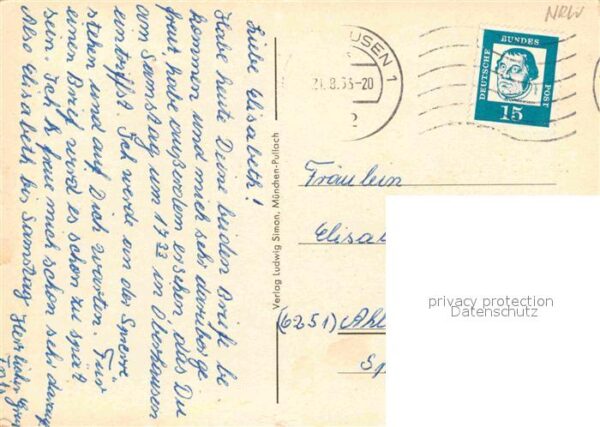 Liebe Elisabeth!
Habe heute Deine beiden Briefe be
kommen und mich sehr darüber ge
freut, habe außerdem ersehen, das Du
am Samstag um 17³³ in Oberhausen
eintriffst. Ich werde an der Sperre
stehen und auf Dich warten. Für
einen Brief wird es schon zu spät
sein. Ich freue mich schon sehr darauf
Also Elisabeth bis Samstag Herzlichen Gruß
Verlag Ludwig Simon, München-Pullach
NRW
USEN 1
-20
2
DEUTSCHE BUNDES POST
15
Fräulein
Elisa
(6251) Ahl
privacy protection
Datenschutz